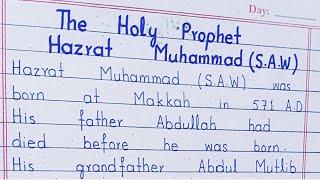 Day:
The Holy Prophet
Hazrat Muhammad (S.A.W)
Hazrat Muhammad (S.A.W) was
born at Makkah in 571 A.D
His father Abdullah had
died before he was born.
His grandfather Abdul Mutlib